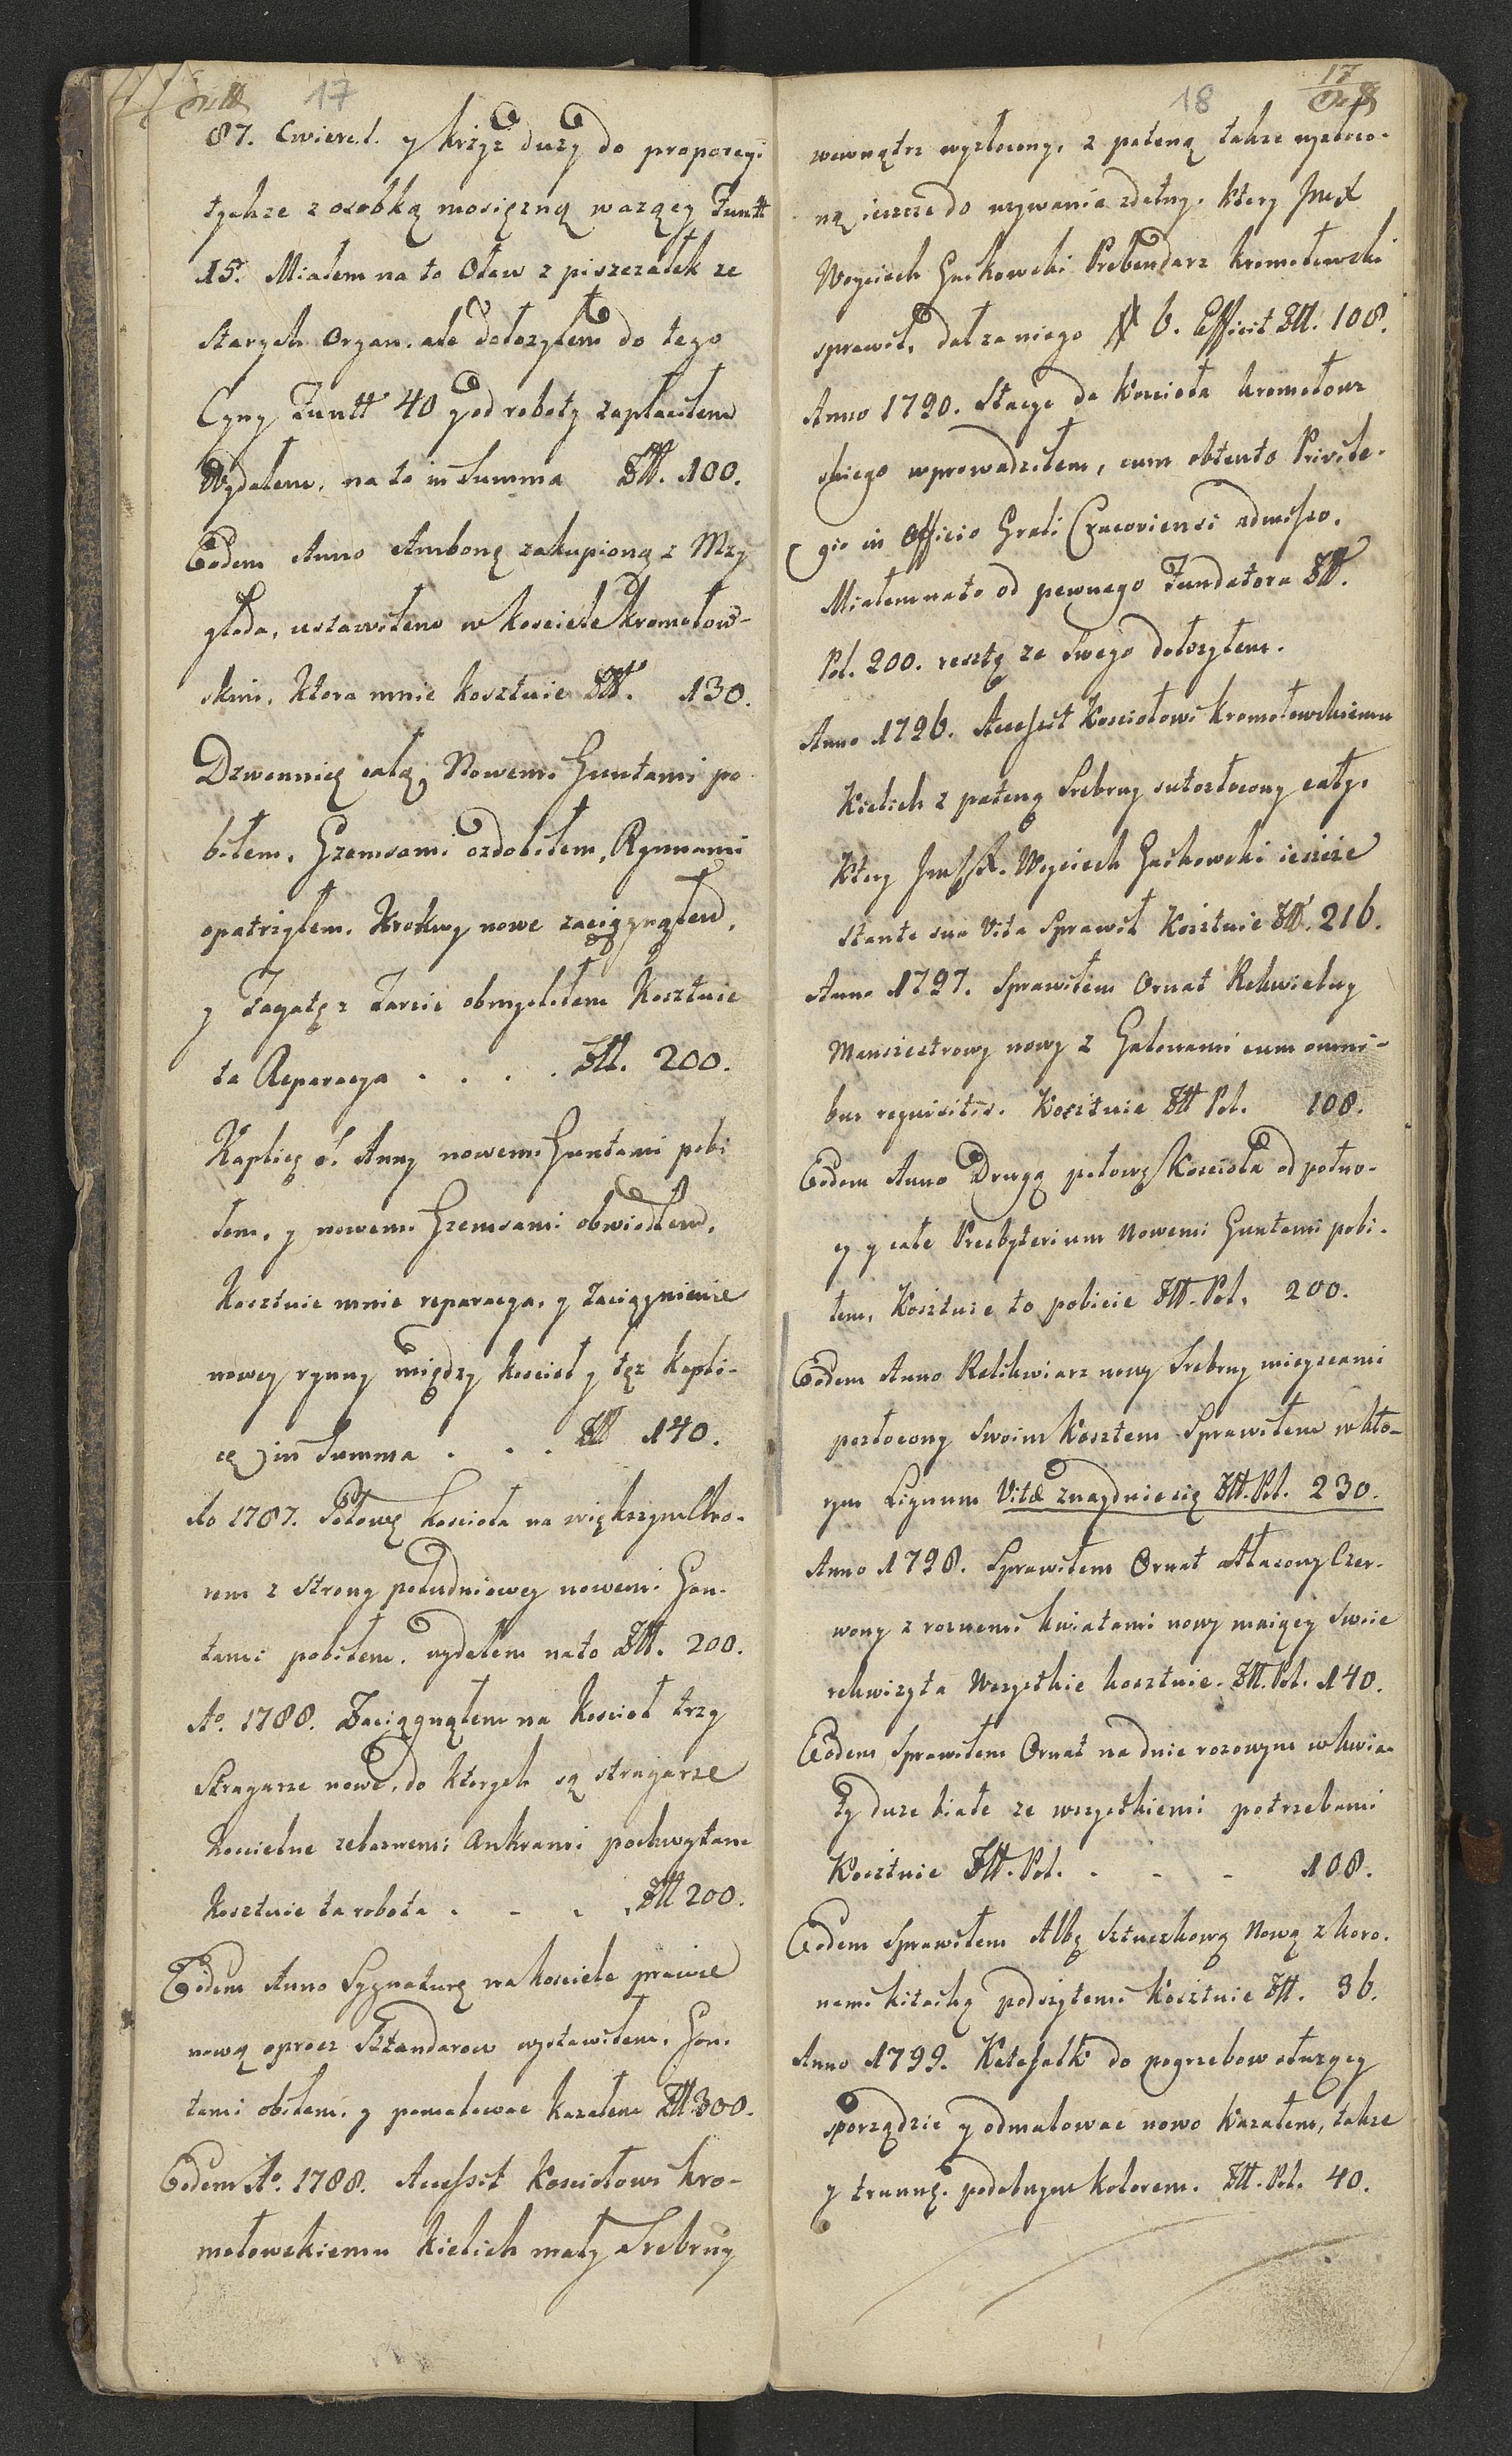 17
87. Cwierc.l. y krzyż duży do procesyi
tychze z osobką mosięzną wazący Funtt
15. Miałem na to Ołow z piszczałek ze
starych Organ. ale dołozyłem do tego
Cyny Funtt 40 y od roboty zapłaciłem
Wydałem, na to in Summa Złł. 100.
Eodem Anno Ambonę zakupioną z Mrzy
głoda, ustawiłem w kosciele kromołow-
skim, ktora mnie kosztuie Złł. 130.
Dzwonnicę całą, Nowemi Guntami po
biłem, Gzemsami ozdobiłem, Rynnami
opatrzyłem. Krokwy nowe zaciągnąłem,
y Fagatę z Tarcic obmyśliłem Kosztuie
ta Reparacya . . . . Złł. 200.
Kaplicę S. Anny nowemi Guntami pobi
łem, y nowemi Gzemsami obwiodłem,
Kosztuie mnie reparacya, y zaciągnienie
nowey rynny między koscioł y tęz kapli-
cę) in Summa . . . Złł 140.
Ao 1787. Połowę koscioła na większym Chro-
rem z strony południowey nowemi Gon-
tami pobiłem, wydałem nato Złł. 200.
Ao. 1788. Zaciągnąłem na koscioł trzy
Stragarze nowe, do ktorych są stragarze
koscielne zelaznemi Ankrami pochwytane
kosztuie ta robota . - . . Złł 200.
Eodem Anno Sygnaturę na kosciele prawie
nową oprocz Sztandarow wystawiłem, Gon.
tami obiłem, y pomalowac kazałem Złł 300.
Eodem Ao. 1788. Accessit Kosciołowi kro-
mołowskiemu kielich mały Srebrny
18 17
wewnątrz wyzłocony, z pateną takze wyzłoco-
ną ieszcze do uzywania zdatny. ktory Jmć X
Woyciech Gaskowski Prebendarz kromołowski
sprawił, dał za niego # 6. Efficit Złł. 108.
Anno 1790. Stacye do Koscioła kromołow
skiego wprowadziłem, cum obtento Privile-
gio in Officio Grali Cracoviensi admisso.
Miałem na to od pewnego Fundatora Złł.
Pol. 200. resztę ze swego dołozyłem.
Anno 1796. Accessit Kosciołowi kromołowskiemu
Kielich z pateną Srebrny suto złocony cały.
Ktory Jmć X. Woyciech Gaskowski ieszcze
stante sua Vita Sprawił Kosztuie Złł. 216.
Anno 1797. Sprawiłem Ornat Rekwialny
Manszestrowy nowy z Galonami cum omni-
bus requisitis. Kosztuie Złł Pol. 108.
Eodem Anno Drugą połowę Koscioła od połno-
cy y całe Presbyterium Nowemi Guntami pobi-
łem, Kosztuie to pobicie Złł. Pol. 200.
Eodem Anno Relikwiarz nowy Srebrny mieyscami
pozłocony Swoim kosztem Sprawiłem w kto-
rym Lignum Vitæ znayduie się Złł. Pol. 230.
Anno 1798. Sprawiłem Ornat atłasowy Czer-
wony z roznemi kwiatami nowy maiący swoie
rekwizyta Wszystkie kosztuie. Złł. Pol. 140.
Eodem Sprawiłem Ornat na dnie rozowym w kwia-
ty duze białe ze wszystkiemi potrzebami
Kosztuie Złł. Pol. . - - 108.
Eodem Sprawiłem Albę Sztuczkową Nową z koro.
nami kitayką podszytemi kosztuie Złł. 36.
Anno 1799. Katafalk do pogrzebow słuzący
sporządzic y odmalowac nowo kazałem, takze
y trunnę podobnym kolorem. Złł. Pol. 40.